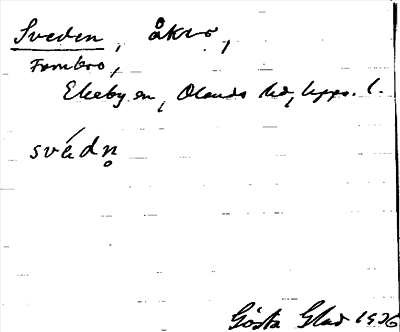 Sveden, åkrar,
Fornbro,
Ekeby sn, Olands hd, Upps. l.
svédn̥
Gösta Glad 1926